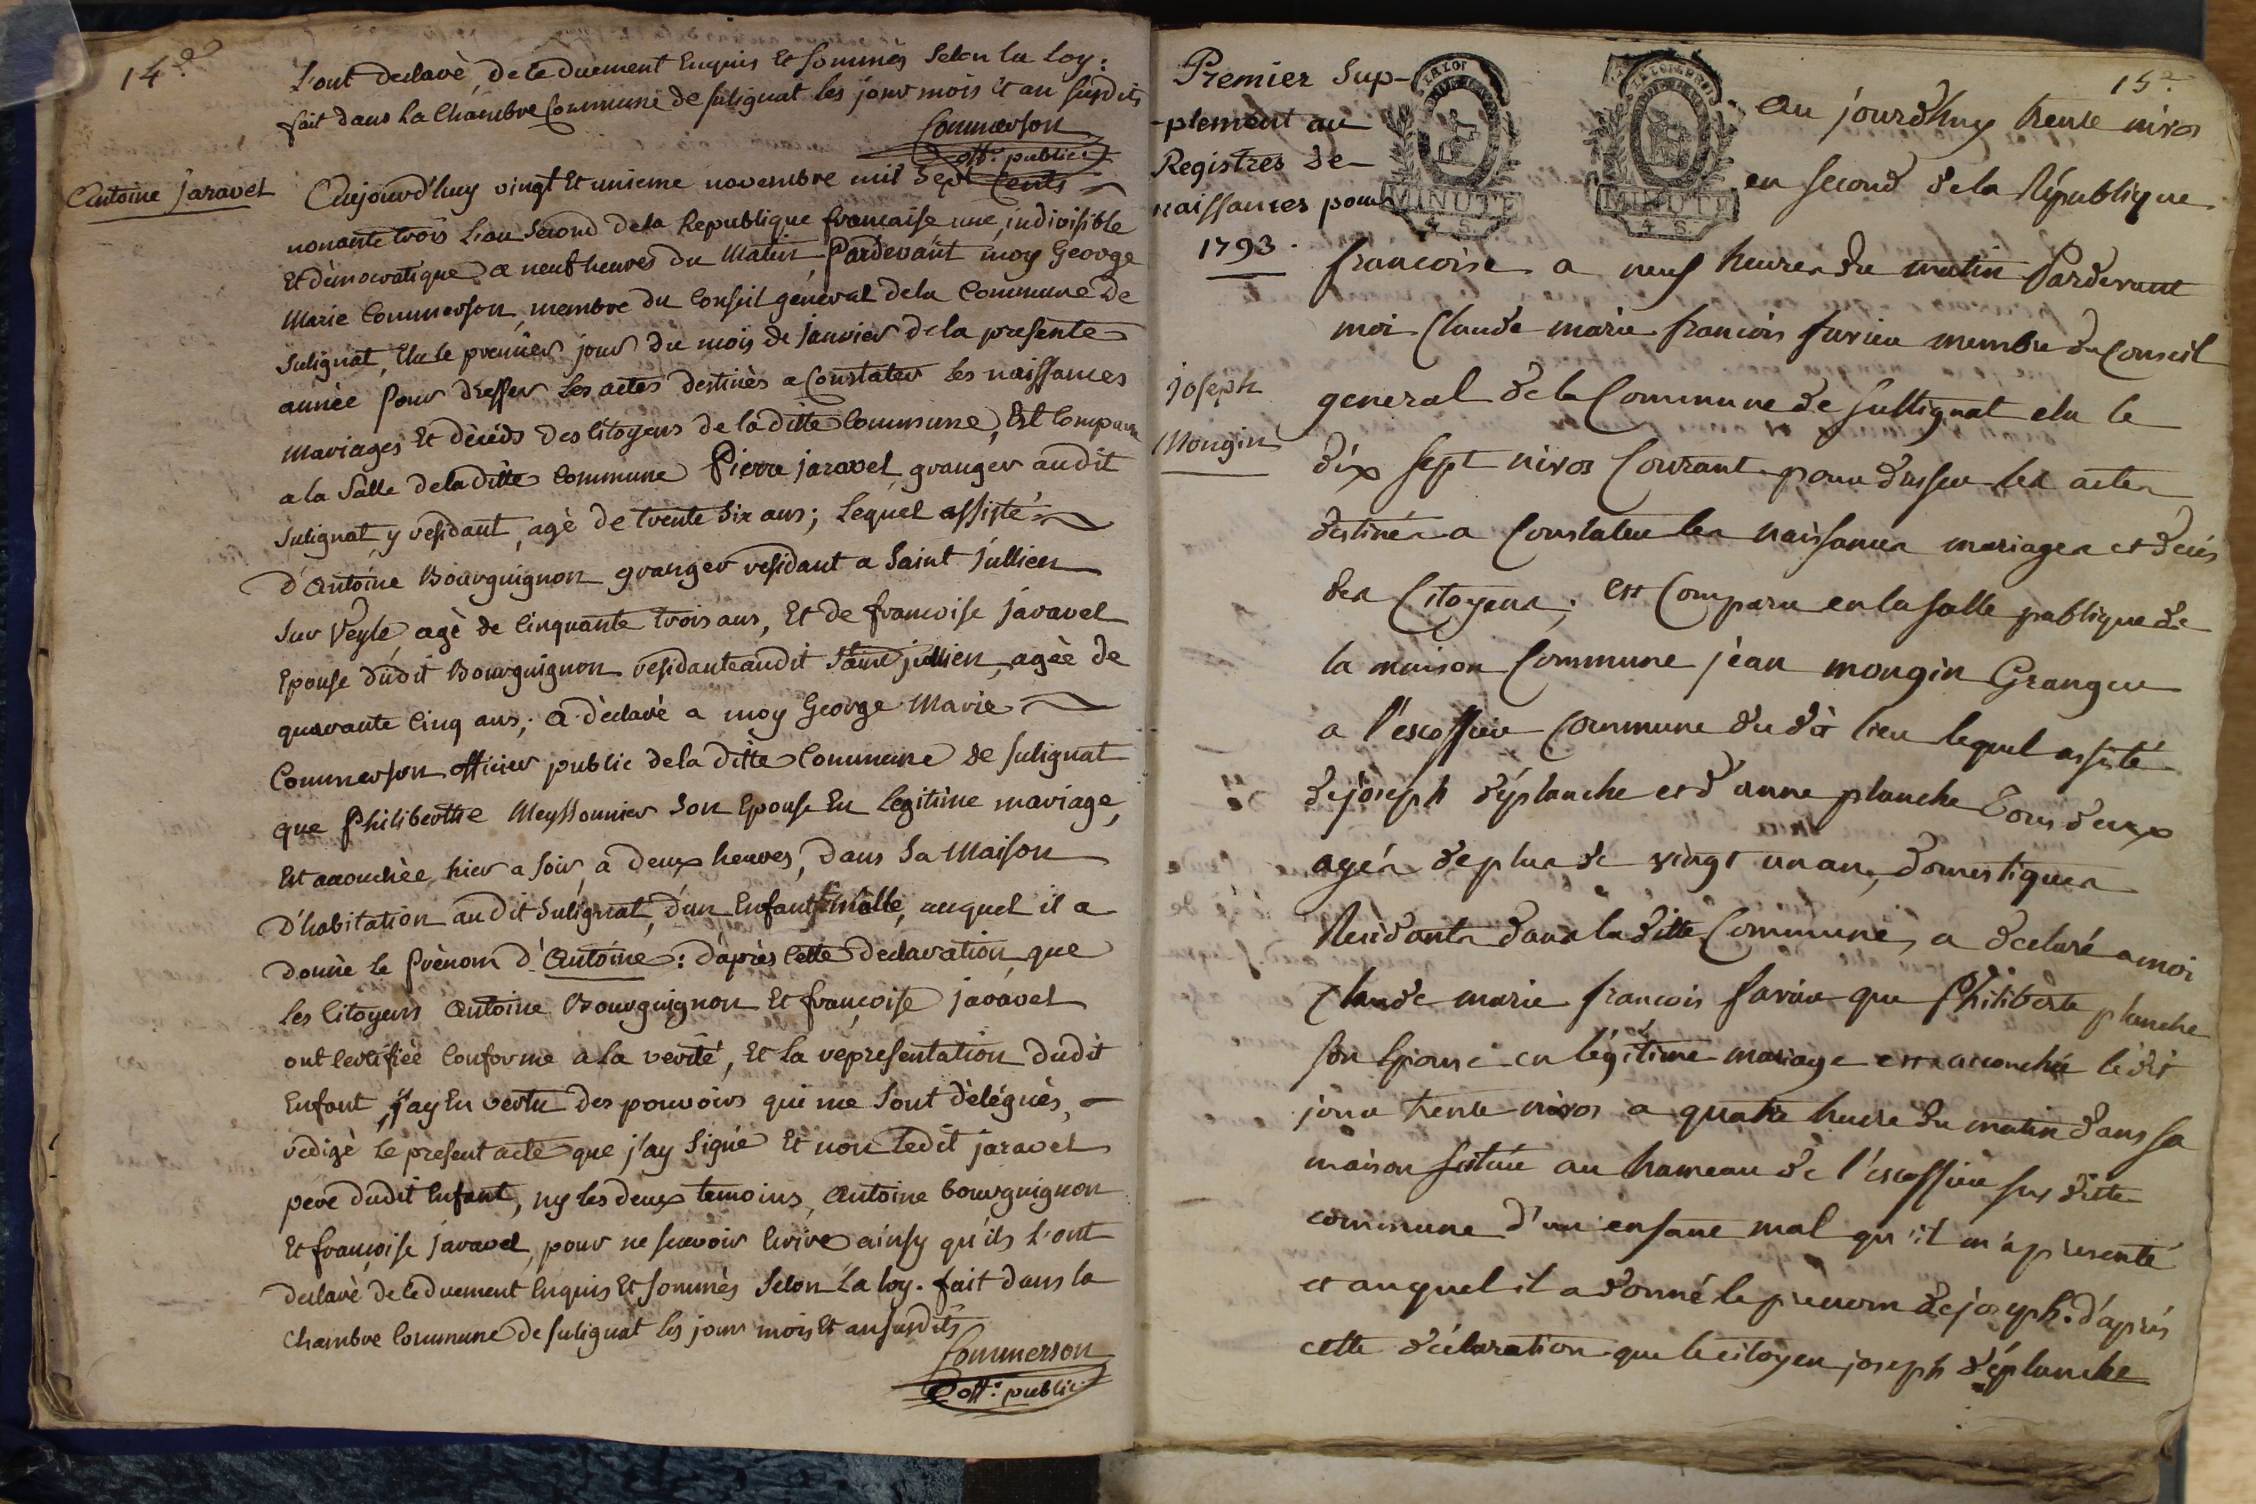 14e
L'ont declaré, de ce duement Enquis Et sommés selon la Loy:
fait dans La Chambre Commune de sulignat les jour mois et an susdits
Commerson
off. public
Antoine Jaravel
Aujourd'huy vingt Et unieme novembre mil sept Cents
nonante trois L'an second de la Republique francaise une, indivisible
Et dèmocratique a neuf heures du Matin, Pardevant moy George
Marie Commerson, membre du Conseil gènèral de la Commune de
Sulignat, Elu le premier jour du mois de janvier de la presente
annèe pour dresser les actes destinès a Constater les naissances
Mariages Et dècèds des Citoyens de la ditte Commune, Est Comparu
a la Salle de la ditte Commune Pierre jaravel granger audit
Sulignat y residant, agè de trente six ans; Lequel assisté
d'Antoine Bourguignon granger residant a Saint Jullien
Sur Veyle agè de Cinquante trois ans, Et de francoise jaravel
Epouse dudit Bourguignon residante audit Saint jullien, agèe de
quarante Cinq ans; A dèclaré a moy George Marie
Commerson officier public de la ditte Commune de sulignat
que Philiberthe Meyssonnier son Epouse En Legitime mariage,
Est accouchèe hier a soir, a deux heures, dans sa Maison
D'habitation audit Sulignat, d'un Enfant mâlle, auquel il a
donnè le Prènom d'Antoine: d'après Cette declaration que
les Citoyens Antoine Bourguignon Et françoise jaravel
ont Certifièe Conforme a la verité, Et la representation dudit
Enfant, j'ay En vertu des pouvoirs qui me sont dèlégués,
redigè le present acte que j'ay Signé Et non Ledit jaravel
pere dudit Enfant, ny les deux temoins, Antoine bourguignon
Et françoise jaravel, pour ne scavoir Ecrire ainsy qu'ils L'ont
declarè de ce duement Enquis Et sommès Selon La loy. fait dans la
Chambre Commune de sulignat les jour mois Et an susdits
Commerson
off. public
15e
Premier Sup-
-plement au
Registres de
naissances pour
1793.
LA LOI
MINUTE
4 S.
MINUTE
4 S.
Au jourd'huy trente nivos
en second de la République
francoise a neuf heures du matin Pardevant
moi Claude marie francois membre du Conseil
Joseph
Mongin
general de la Commune de sullignat elu le
dix sept nivos Courant pour dresser les actes
destinés a Constater les naissances mariages et decés
des Citoyens; est Comparu en la salle publique de
la maison Commune jèan mongin Granger
a l'escoffier Commune du dit lieu lequel assisté
de joseph déplanche et d'anne planche tous deux
agés de plus de vingt un an, domestiques
Residants dans la ditte Commune, a declaré a moi
Claude marie francois que Philiberte planche
son Epouse en légitime mariage est accouchée ledit
jour trente nivos a quatre heure du matin dans sa
maison scituée au hameau de l'escoffier sus ditte
commune d'un enfant mal qu'il m'a présenté
et auquel il a donné le prenom de joseph. d'après
cette déclaration que le citoyen joseph déplanche